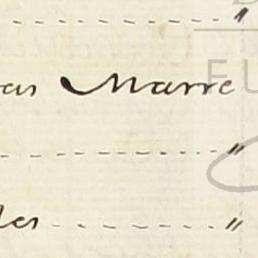 "
as Marre
"
les "